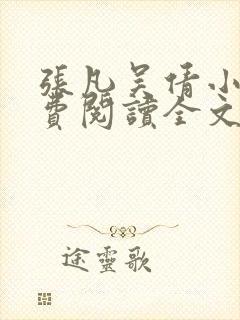 張凡吴倩小
費閱讀全文
途靈歌